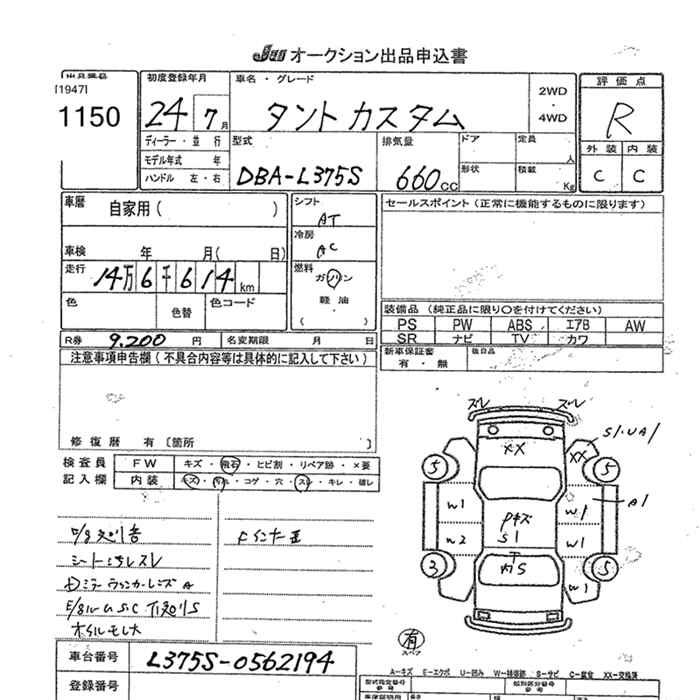 JU オークション出品申込書
出品番号
[1947]
1150
初度登録年月
24 年 7 月
車名・グレード
タントカスタム
2WD
・
4WD
評価点
R
ディーラー・並 行
モデル年式 年
ハンドル 左・右
型式
DBA-L375S
排気量
660cc
ドア
定員
人
形状
積載
Kg
外装 内装
C C
車歴
自家用( )
シフト
AT
冷房
AC
燃料
ガソリン
軽油
( )
セールスポイント(正常に機能するものに限ります)
車検 年 月( 日)
走行 14万6千614km
色
色替
色コード
装備品(純正品に限り○を付けてください)
PS PW ABS エアB AW
SR ナビ TV カワ
新車保証書
有・無
後日品
R券 9.200 円 名変期限 月 日
注意事項申告欄(不具合内容等は具体的に記入して下さい)
修復歴 有〔箇所 〕
検査員 FW キズ・飛石・ヒビ割・リペア跡・×要
記入欄 内装 キズ・汚れ・コゲ・穴・スレ・キレ・破レ
シートよごれスレ
Dミラーウィンカーレンズ A
オイルモレ大
ズレ ズレ
S1.UA1
XX XX
5 5
A1
W1 W1
Pキズ
S1
W2 W1
3 5
W1
有
スペア
A-キズ E-エクボ U-凹み W-補修跡 S-サビ C-腐食 XX-交換済
車台番号 L375S-0562194
登録番号
型式指定番号
類別区分番号